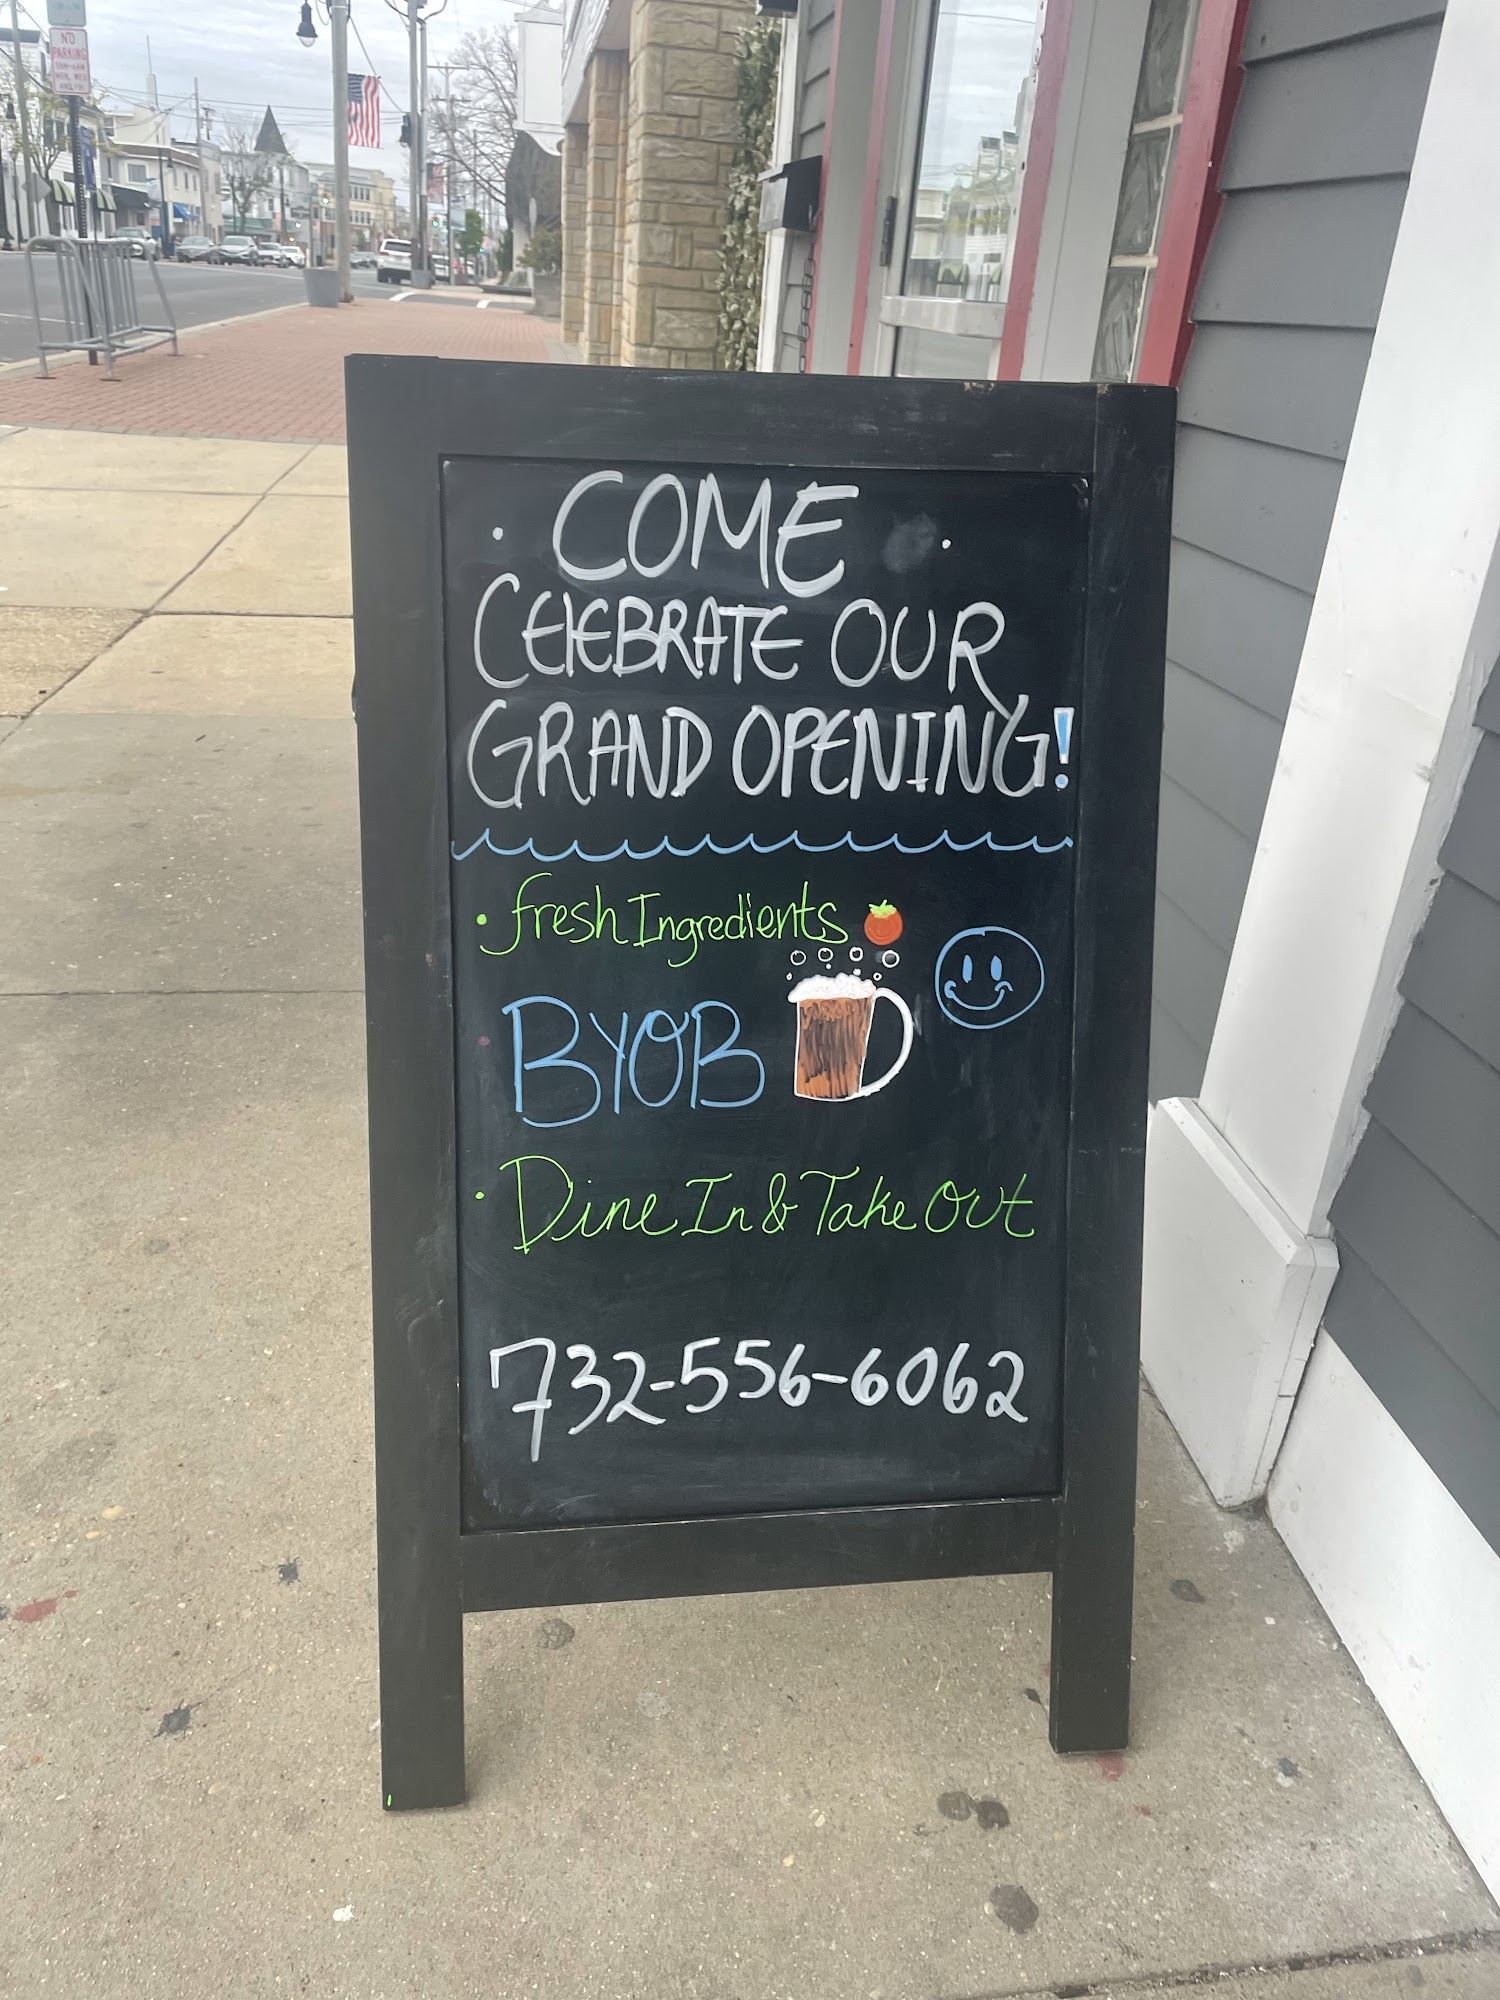 NO
PARKING
3AM-6AM
MON, WED
AND FRI
• COME •
CELEBRATE OUR
GRAND OPENING!
• fresh Ingredients
• BYOB
• Dine In & Take Out
732-556-6062